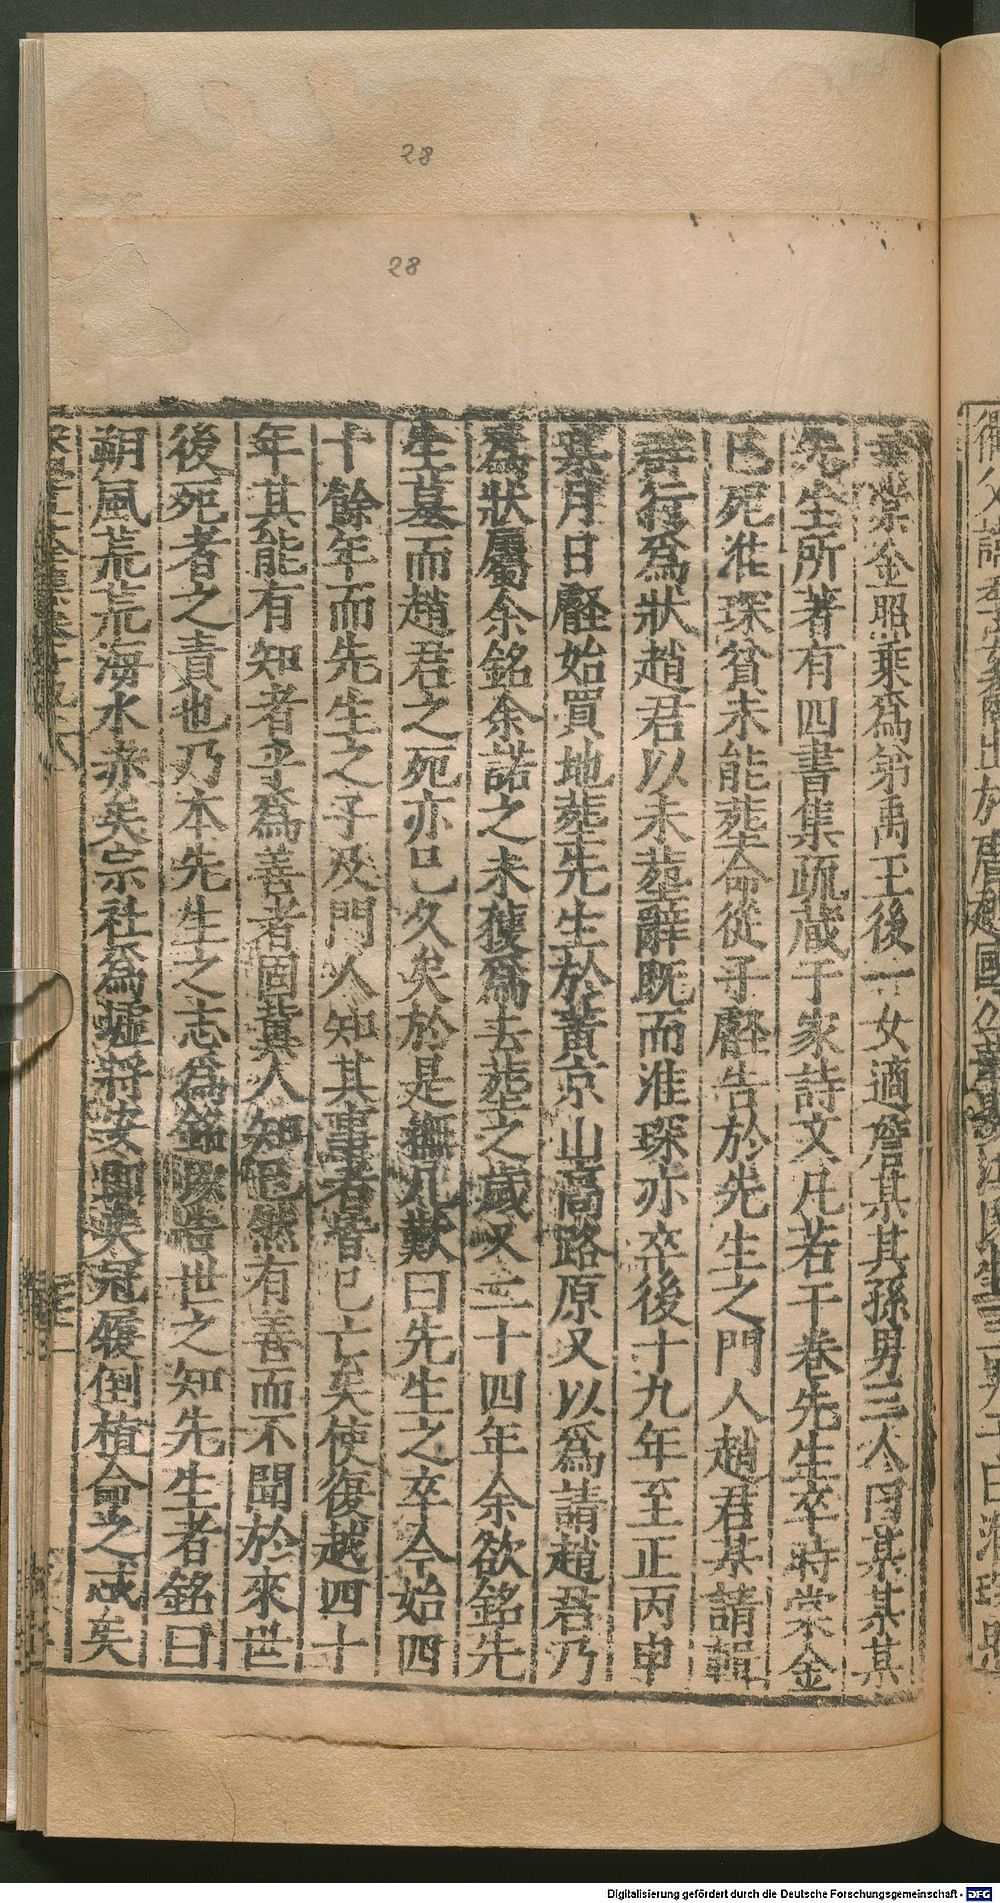 28
28
崇金昭業為翁禹王後一女適詹某其孫男三人曰某某某
先生所著有四書集疏蔵于家詩文凡若干卷先生卒時崇金
已死淮琛貧未能塟命從子壂告於先生之門人趙君某請輯
行為狀趙君以未塟辭既而淮琛亦卒後十九年至正丙申
某月日壂始買地塟先生於黃京山高路原又以為請趙君乃
為狀屬余銘余諾之未獲為去塟之歲又二十四年余欲銘先
生墓而趙君之死亦已久矣於是撫几歎曰先生之卒今始四
十餘年而先生之子及門人知其事者皆已亡矣使復越四十
年其能有知者乎為善者固冀人知也然有善而不聞於來世
後死者之責也乃本先生之志為銘以告世之知先生者銘曰
朔風荒荒海水赤矣宗社為墟將安即矣冠屨倒植僉之惑矣
Digitalisierung gefördert durch die Deutsche Forschungsgemeinschaft - DFG